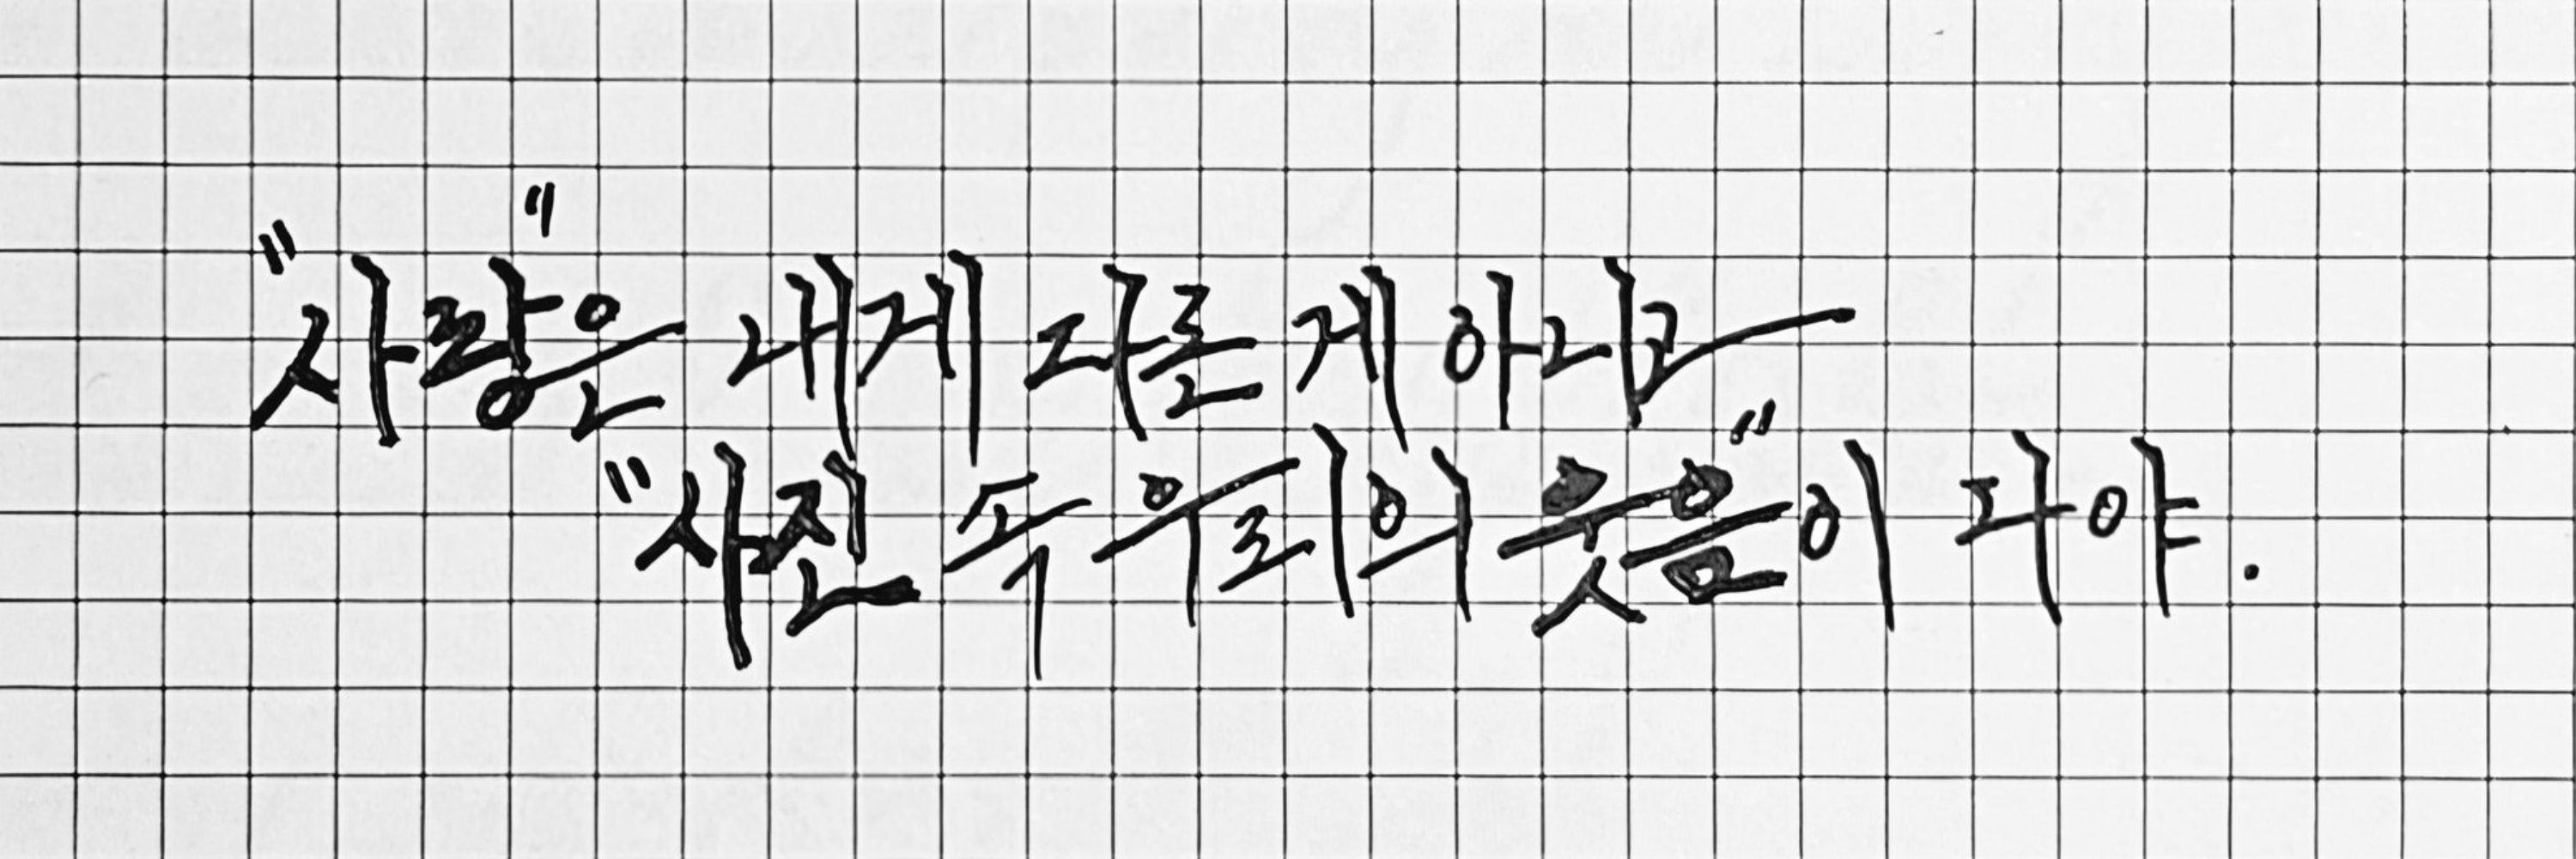 "사랑"은 내게 다른 게 아니라
"사진 속 우리의 웃음"이 다야.